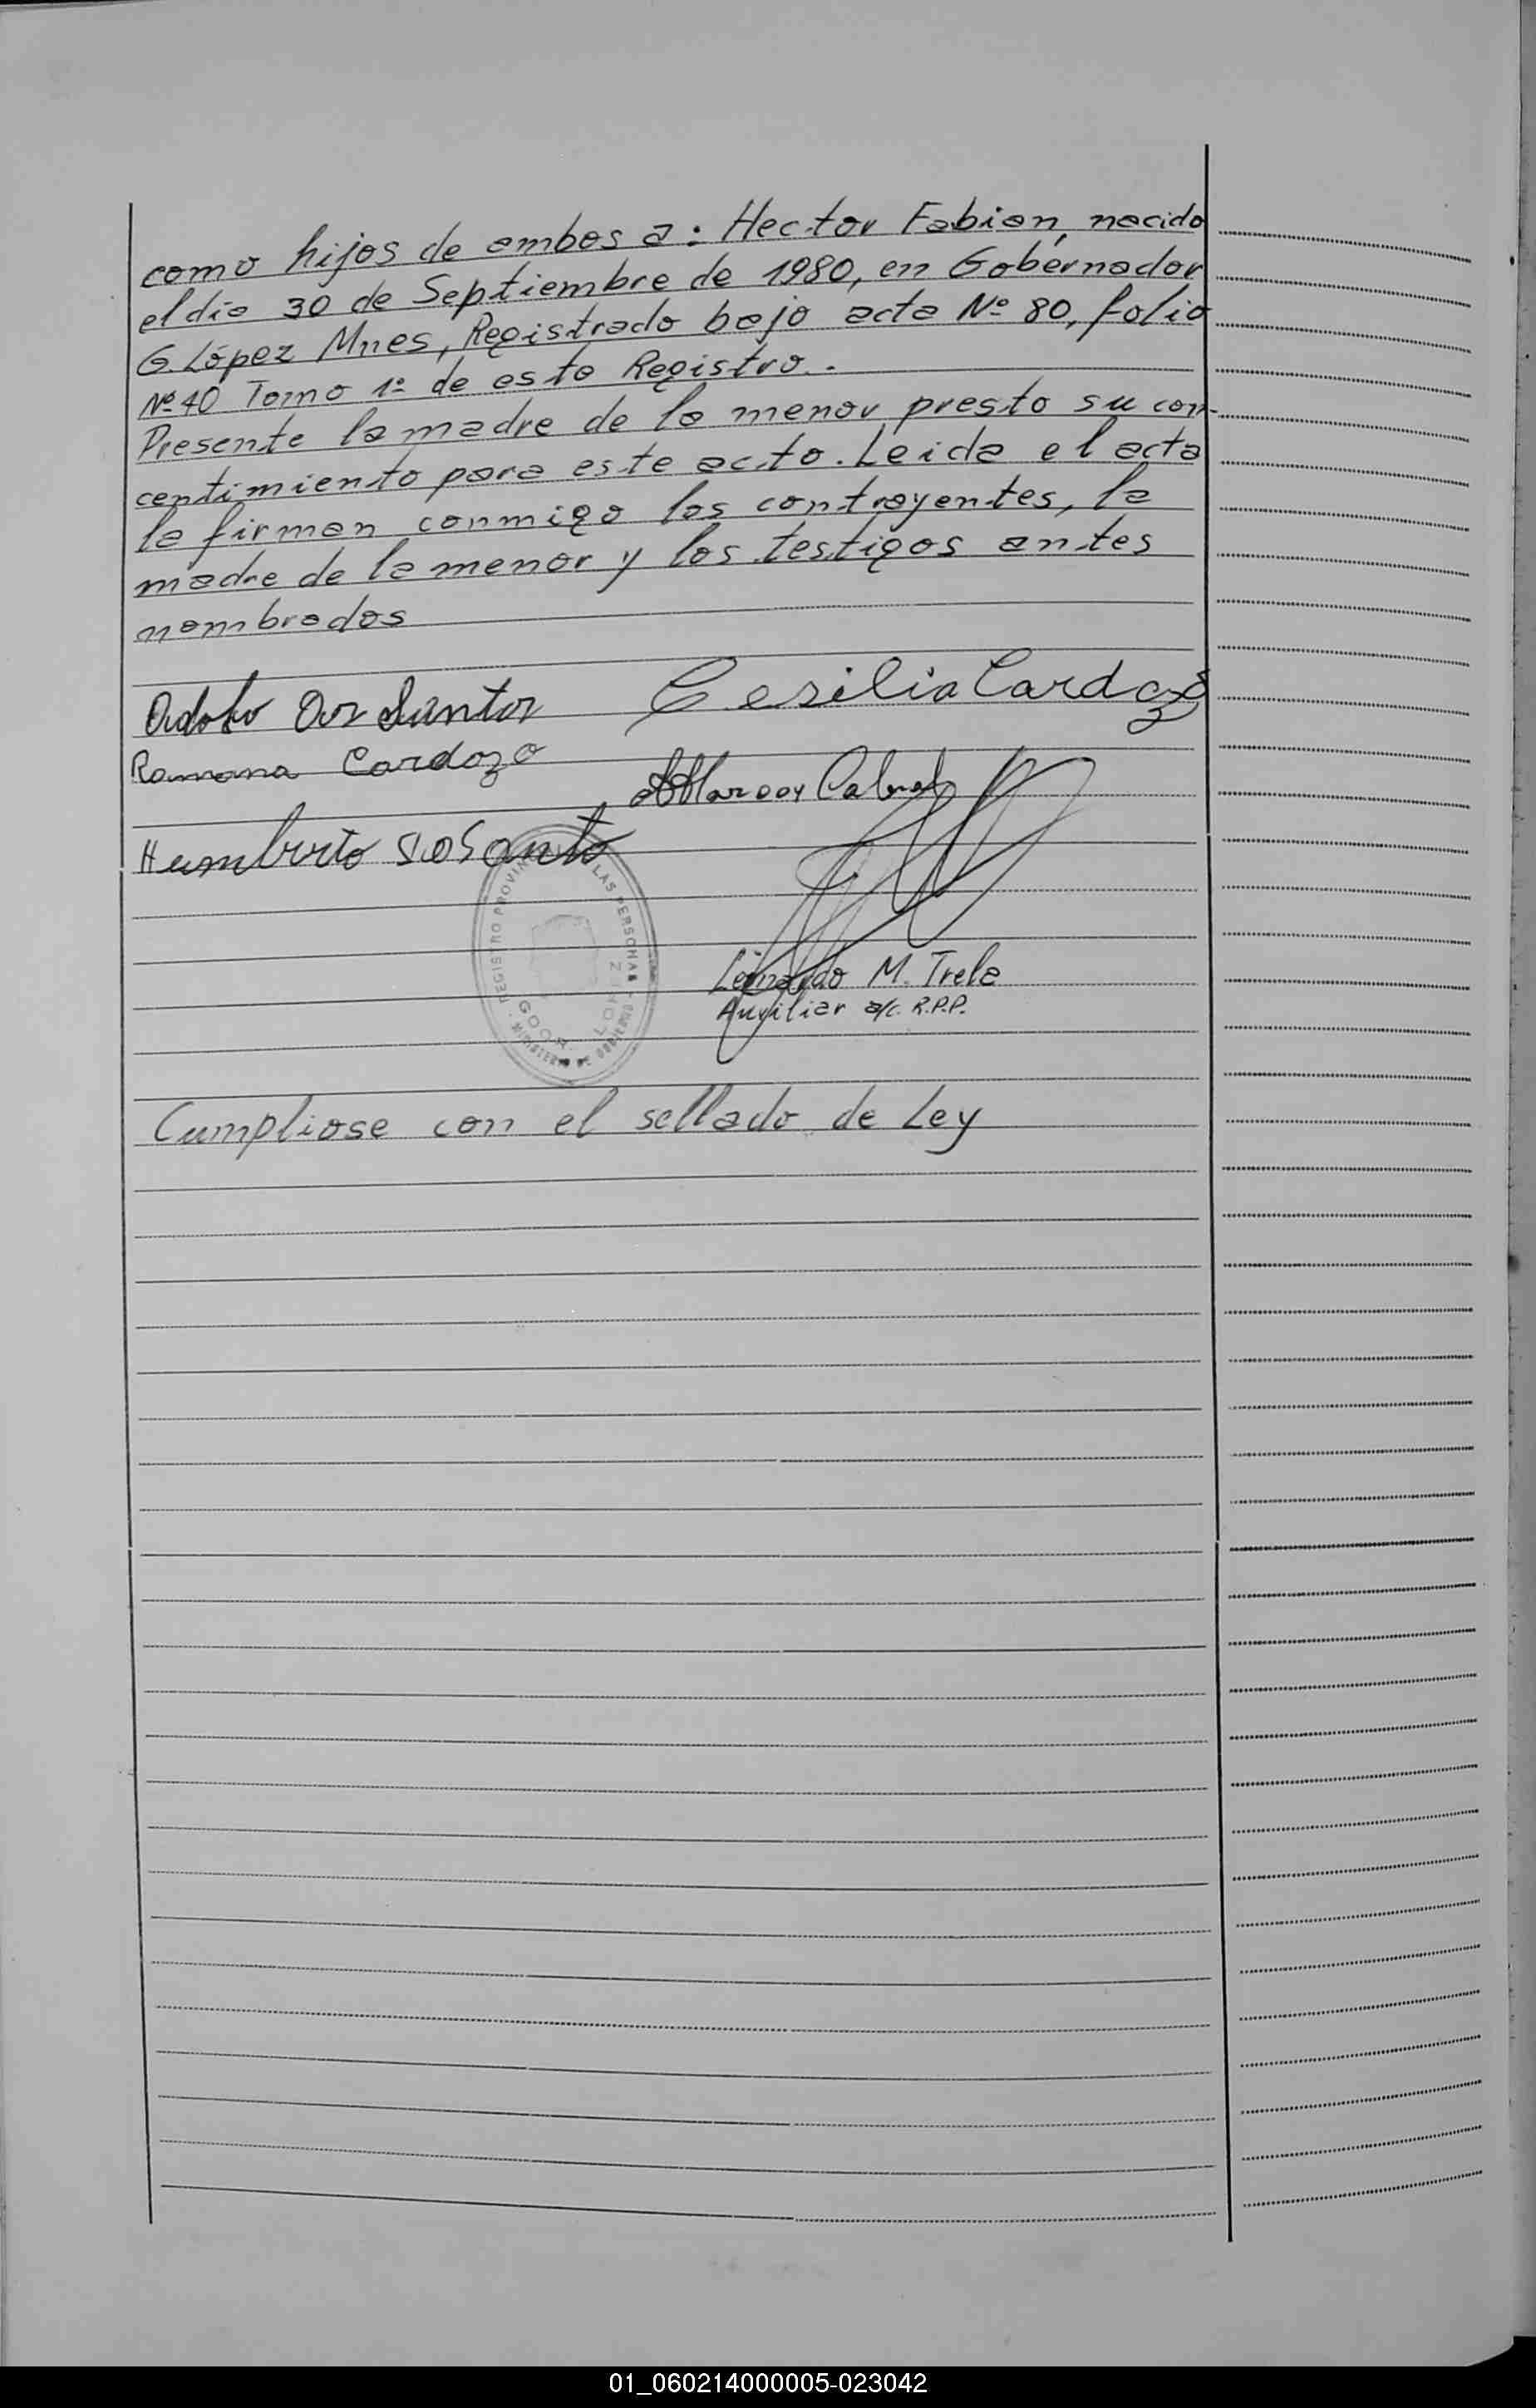 como hijos de ambos a: Hector Fabian, nacido
el día 30 de Septiembre de 1980, en Gobernador
G. López Mnes, Registrado bajo acta Nº 80, folio
Nº 40 Tomo 1º de este Registro.-
Presente la madre de la menor presto su con-
centimiento para este acto. Leida el acta
la firman conmigo los contrayentes, la
madre de la menor y los testigos antes
nombrados
Adolfo Dos Santos Cesilia Cardozo
Ramona Cardozo
Cabral
Humberto Dos Santo
REGISTRO PROVIN LAS PERSONAS
MINISTERIO DE GOBIERNO
Leonardo M. Trela
Auxiliar a/c. R.P.P.
Cumpliose con el sellado de Ley
01_060214000005-023042